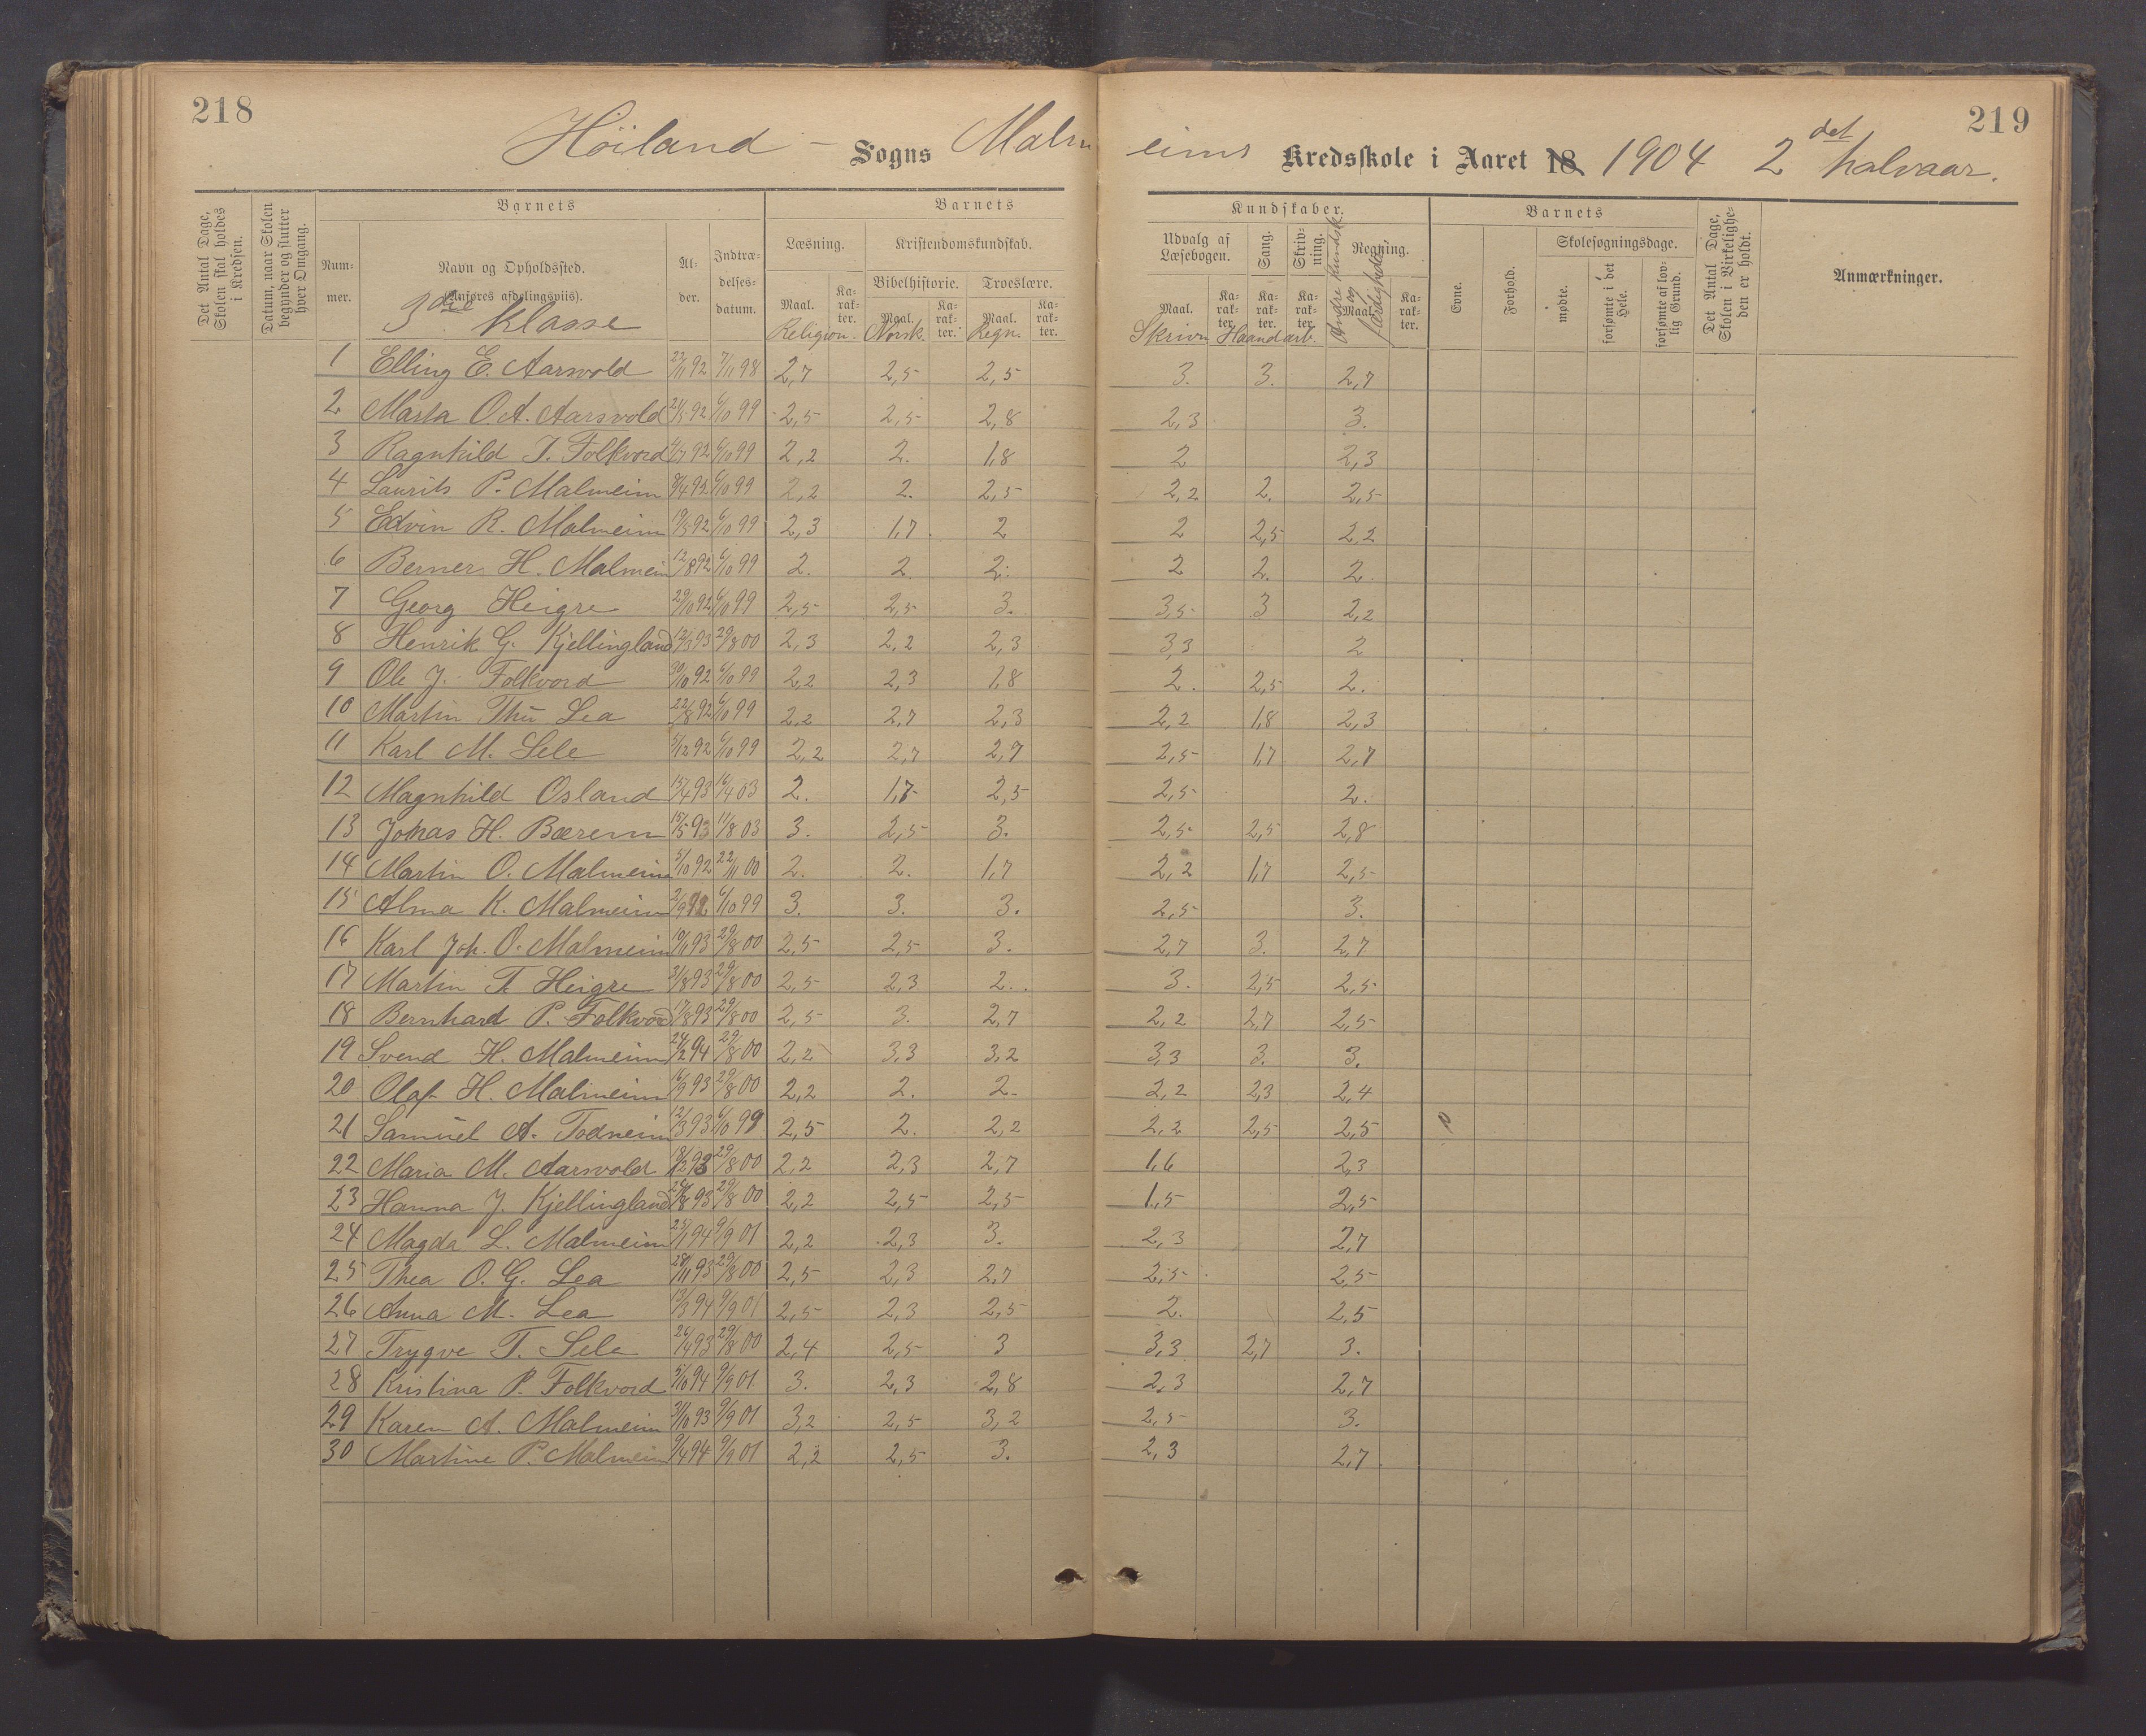 218
219
Höiland - Sogns Malmeims Kredsskole i Aaret 18 1904 2det halvaar.
Det Antal Dage, Skolen skal holdes i Kredsen.
Datum, naar Skolen begynder og slutter hver Omgang.
Barnets
Nummer.
Navn og Opholdssted. (Anføres afdelingsviis).
3die Klasse
Alder.
Indtrædelsesdatum.
Barnets
Læsning. Kristendomskundskab.
Bibelhistorie. Troeslære.
Maal. Karakter. Maal. Karakter. Maal. Karakter.
Religion. Norsk. Regn.
Kundskaber.
Udvalg af Læsebogen. Sang. Skrivning. Regning.
Maal. Karakter. Karakter. Karakter. Maal. Karakter.
Skrivn. Haandarb. Andre Kundsk. og færdigheder
Barnets
Evne. Forhold. Skolesøgningsdage.
mødte. forsømte i det Hele. forsømte af lovlig Grund.
Det Antal Dage, Skolen i Virkeligheden er holdt.
Anmærkninger.
1 Elling E. Aarsvold 23/11 92 7/11 98 2,7 2,5 2,5 3. 3. 2,7
2 Marta O.A. Aarsvold 21/5 92 6/10 99 2,5 2,5 2,8 2,3 3.
3 Ragnhild T. Folkvord 92 6/10 99 2,2 2. 1,8 2 2,3
4 Laurits P. Malmeim 8/4 92 6/10 99 2,2 2. 2,5 2,2 2. 2,5
5 Edvin R. Malmeim 19/5 92 6/10 99 2,3 1,7 2 2 2,5 2,2
6 Berner H. Malmeim 12/8 92 6/10 99 2. 2. 2. 2 2. 2.
7 Georg Heigre 29/10 92 6/10 99 2,5 2,5 3. 3,5 3 2,2
8 Henrik G. Kjellingland 12/3 93 29/8 00 2,3 2,2 2,3 3,3 2
9 Ole J. Folkvord 30/10 92 6/10 99 2,2 2,3 1,8 2. 2,5 2.
10 Martin Thu Lea 22/8 92 6/10 99 2,2 2,7 2,3 2,2 1,8 2,3
11 Karl M. Sele 5/12 92 6/10 99 2,2 2,7 2,7 2,5 1,7 2,7
12 Magnhild Osland 15/4 93 16/4 03 2. 1,7 2,5 2,5 2.
13 Johas H. Bærem 15/5 93 11/8 03 3. 2,5 3. 2,5 2,5 2,8
14 Martin O. Malmeim 5/10 92 22/11 00 2. 2. 1,7 2,2 1,7 2,5
15 Alma K. Malmeim 2/9 92 6/10 99 3. 3. 3. 2,5 3.
16 Karl Joh. O. Malmeim 93 29/8 00 2,5 2,5 3. 2,7 3. 2,7
17 Martin T. Heigre 31/8 93 29/8 00 2,5 2,3 2. 3. 2,5 2,5
18 Bernhard P. Folkvord 17/8 93 29/8 00 2,5 3. 2,7 2,2 2,7 2,5
19 Svend H. Malmeim 24/2 94 29/8 00 2,2 3,3 3,2 3,3 3. 3.
20 Olaf H. Malmeim 16/9 93 29/8 00 2,2 2. 2. 2,2 2,3 2,4
21 Samuel A. Todneim 12/3 93 6/10 99 2,5 2. 2,2 2,2 2,5 2,5
22 Maria M. Aarsvold 18/12 93 29/8 00 2,2 2,3 2,7 1,6 2,3
23 Hanna J. Kjellingland 93 29/8 00 2,2 2,5 2,5 1,5 2,5
24 Magda L. Malmeim 25/1 94 9/9 01 2,2 2,3 3. 2,3 2,7
25 Thea O. G. Lea 28/11 93 29/8 00 2,5 2,3 2,7 2,5 2,5
26 Anna M. Lea 13/3 94 9/9 01 2,5 2,3 2,5 2. 2,5
27 Trygve T. Sele 26/4 93 29/8 00 2,4 2,5 3 3,3 2,7 3.
28 Kristina P. Folkvord 5/10 94 9/9 01 3. 2,3 2,8 2,3 2,7
29 Karen A. Malmeim 31/10 93 9/9 01 3,2 2,5 3,2 2,5 3.
30 Martine P. Malmeim 9/4 94 9/9 01 2,2 2,5 3. 2,3 2,7